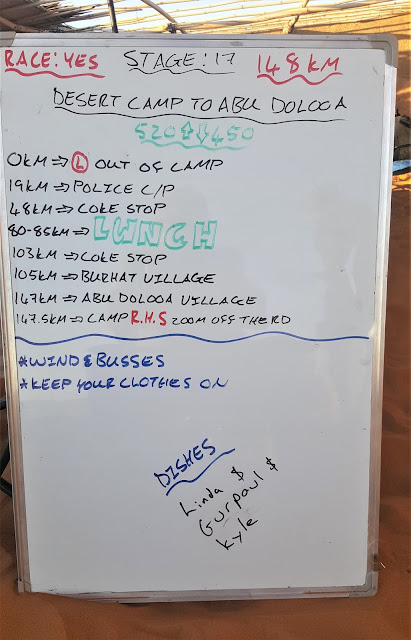 RACE: YES STAGE: 17 148 KM
DESERT CAMP TO ABU DOLOOA
520⇧⇩450
0KM ⇒ Ⓛ OUT OF CAMP
19KM ⇒ POLICE C/P
48KM ⇒ COKE STOP
80-85KM ⇒ LUNCH
103KM ⇒ COKE STOP
105KM ⇒ BURHAT VILLAGE
147KM ⇒ ABU DOLOOA VILLAGE
147.5KM ⇒ CAMP R.H.S 200M OFF THE RD
*WIND & BUSSES
*KEEP YOUR CLOTHES ON
DISHES
Linda &
Gurpaul &
Kyle